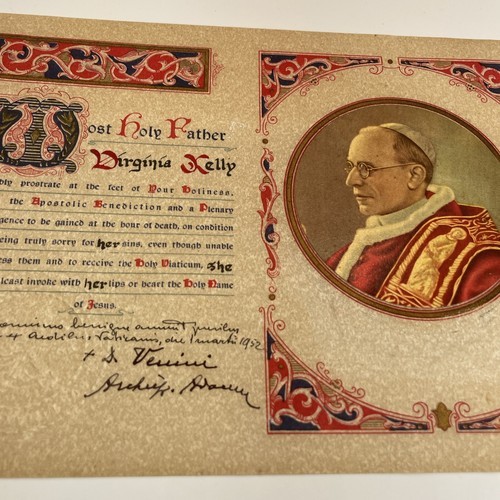 Most Holy Father
Virginia Kelly
bly prostrate at the feet of Your Holiness,
the Apostolic Benediction and a Plenary
gence to be gained at the hour of death, on condition
eing truly sorry for her sins, even though unable
ess them and to receive the Holy Viaticum, She
east invoke with her lips or heart the Holy Name
of Jesus.
benigne annuit
ex Aedibus Vaticanis, die 1 martii 1952
+ D. Venini
Archiep. Adan